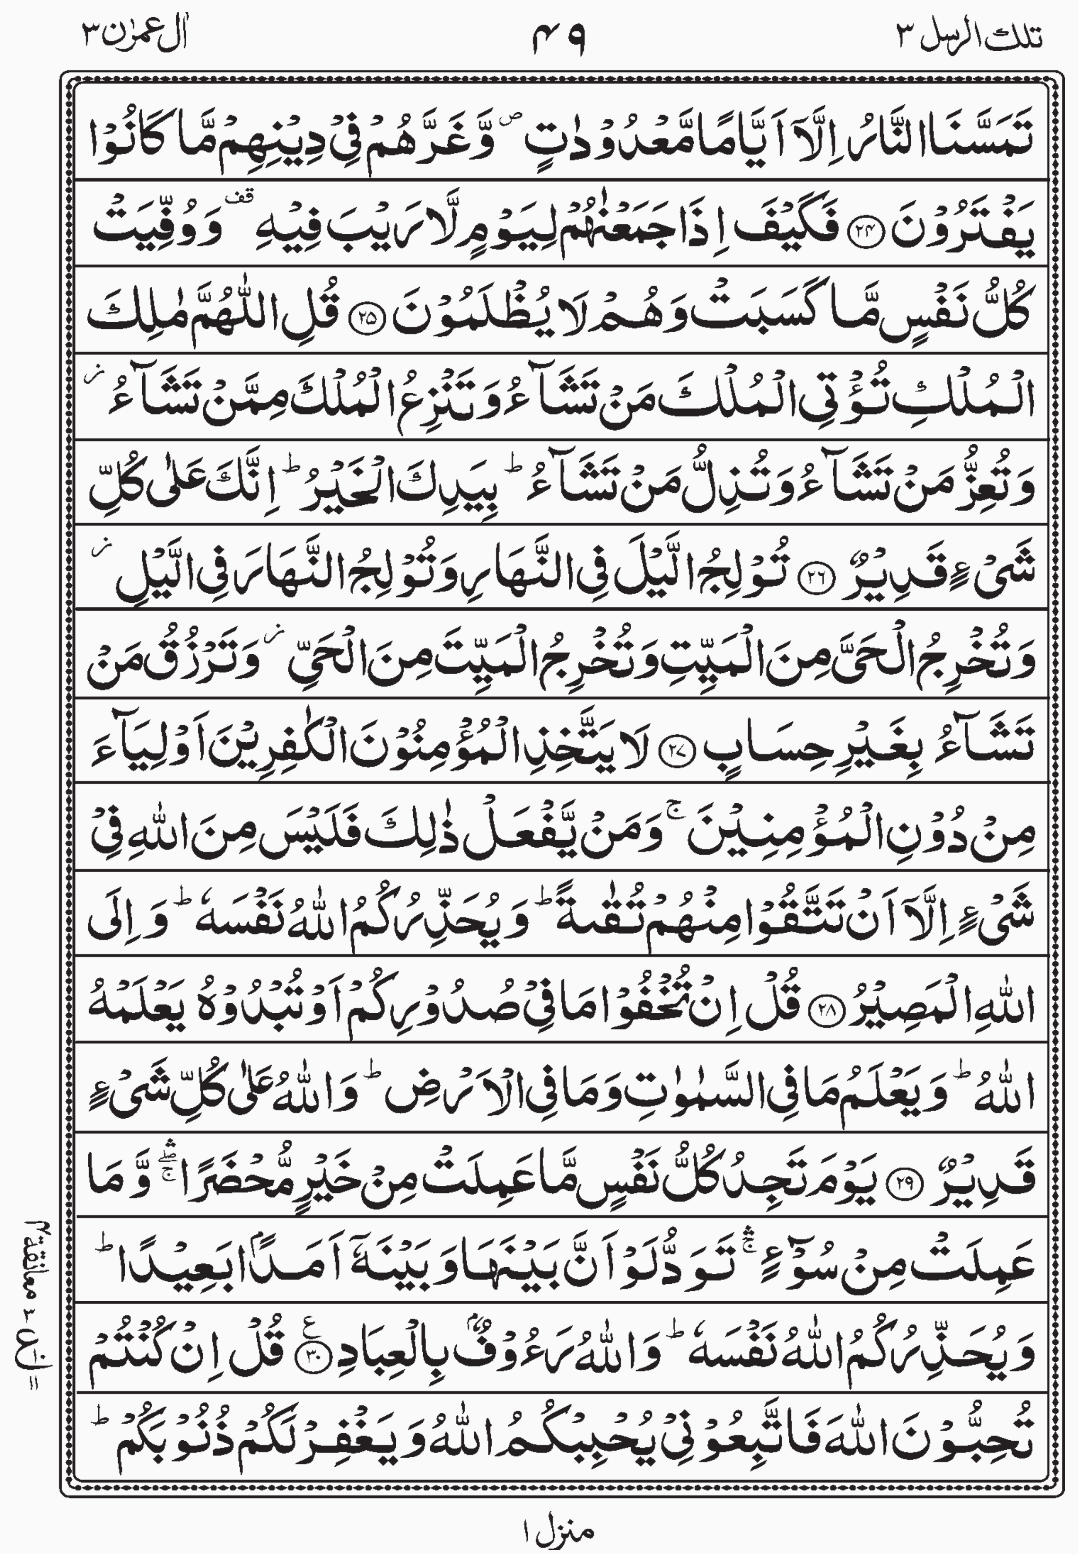 تلك الرسل ٣
٤٩
اٰل عمرٰن ٣
تَمَسَّنَا النَّارُ اِلَّاۤ اَيَّامًا مَّعْدُوْدٰتٍ ࣕ وَّغَرَّهُمْ فِيْ دِيْنِهِمْ مَّا كَانُوْا
يَفْتَرُوْنَ ﴿٢٤﴾ فَكَيْفَ اِذَا جَمَعْنٰهُمْ لِيَوْمٍ لَّا رَيْبَ فِيْهِ قف وَوُفِّيَتْ
كُلُّ نَفْسٍ مَّا كَسَبَتْ وَهُمْ لَا يُظْلَمُوْنَ ﴿٢٥﴾ قُلِ اللّٰهُمَّ مٰلِكَ
الْمُلْكِ تُؤْتِي الْمُلْكَ مَنْ تَشَآءُ وَتَنْزِعُ الْمُلْكَ مِمَّنْ تَشَآءُ ز
وَتُعِزُّ مَنْ تَشَآءُ وَتُذِلُّ مَنْ تَشَآءُ ؕ بِيَدِكَ الْخَيْرُ ؕ اِنَّكَ عَلٰى كُلِّ
شَيْءٍ قَدِيْرٌ ﴿٢٦﴾ تُوْلِجُ الَّيْلَ فِي النَّهَارِ وَتُوْلِجُ النَّهَارَ فِي الَّيْلِ ز
وَتُخْرِجُ الْحَيَّ مِنَ الْمَيِّتِ وَتُخْرِجُ الْمَيِّتَ مِنَ الْحَيِّ ز وَتَرْزُقُ مَنْ
تَشَآءُ بِغَيْرِ حِسَابٍ ﴿٢٧﴾ لَا يَتَّخِذِ الْمُؤْمِنُوْنَ الْكٰفِرِيْنَ اَوْلِيَآءَ
مِنْ دُوْنِ الْمُؤْمِنِيْنَ ۚ وَمَنْ يَّفْعَلْ ذٰلِكَ فَلَيْسَ مِنَ اللّٰهِ فِيْ
شَيْءٍ اِلَّاۤ اَنْ تَتَّقُوْا مِنْهُمْ تُقٰىةً ؕ وَيُحَذِّرُكُمُ اللّٰهُ نَفْسَهٗ ؕ وَاِلَى
اللّٰهِ الْمَصِيْرُ ﴿٢٨﴾ قُلْ اِنْ تُخْفُوْا مَا فِيْ صُدُوْرِكُمْ اَوْ تُبْدُوْهُ يَعْلَمْهُ
اللّٰهُ ؕ وَيَعْلَمُ مَا فِي السَّمٰوٰتِ وَمَا فِي الْاَرْضِ ؕ وَاللّٰهُ عَلٰى كُلِّ شَيْءٍ
قَدِيْرٌ ﴿٢٩﴾ يَوْمَ تَجِدُ كُلُّ نَفْسٍ مَّا عَمِلَتْ مِنْ خَيْرٍ مُّحْضَرًا ۛۖۚ وَّمَا
عَمِلَتْ مِنْ سُوْٓءٍ ۛۚ تَوَدُّ لَوْ اَنَّ بَيْنَهَا وَبَيْنَهٗۤ اَمَدًاۢ بَعِيْدًا ؕ
وَيُحَذِّرُكُمُ اللّٰهُ نَفْسَهٗ ؕ وَاللّٰهُ رَءُوْفٌۢ بِالْعِبَادِ ﴿٣٠﴾ ع قُلْ اِنْ كُنْتُمْ
تُحِبُّوْنَ اللّٰهَ فَاتَّبِعُوْنِيْ يُحْبِبْكُمُ اللّٰهُ وَيَغْفِرْ لَكُمْ ذُنُوْبَكُمْ ؕ
منزل ١